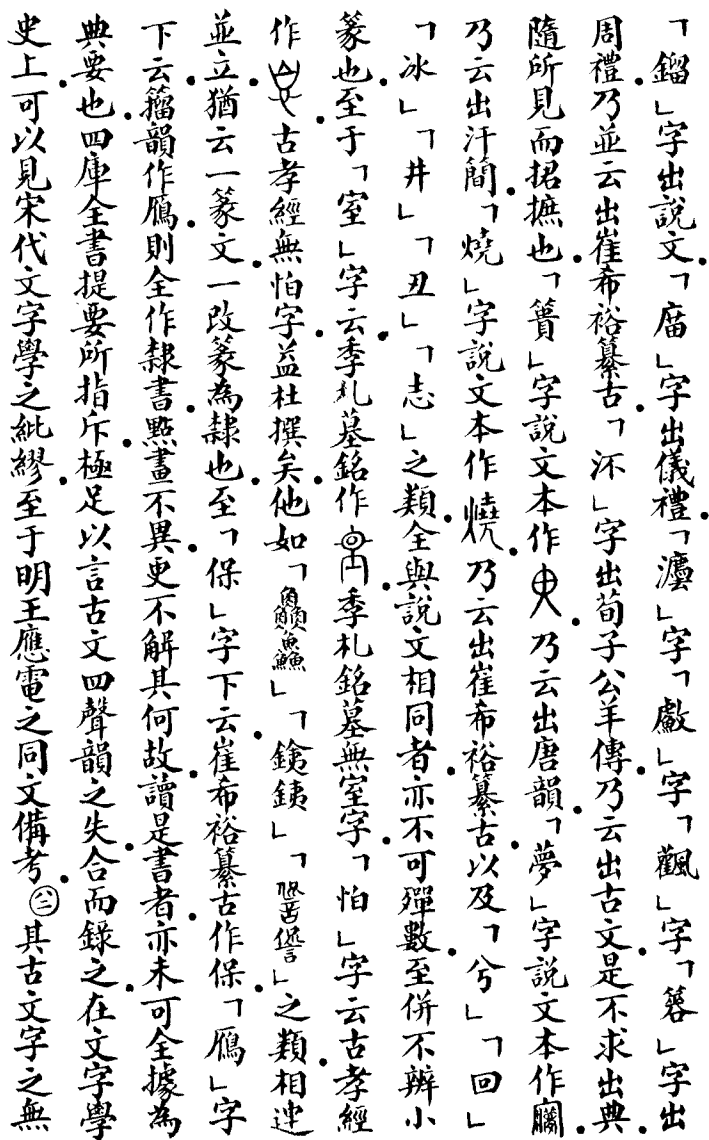 「鎦」字出說文。「庿」字出儀禮。「灋」字「𢿛」字「飌」字「簭」字出
周禮。乃並云出崔希裕纂古。「沠」字出荀子公羊傳。乃云出古文。是不求出典。
隨所見而捃摭也。「簣」字說文本作。乃云出唐韻。「夢」字說文本作
乃云出汗簡。「燒」字說文本作燒。乃云出崔希裕纂古。以及「兮」「回」
「冰」「井」「丑」「志」之類。全與說文相同者。亦不可殫數。至併不辨小
篆也。至于「室」字云。季札墓銘作。季札銘墓無室字。「怕」字云古孝經
作。古孝經無怕字。益杜撰矣。他如「」「銕銕」「」之類。相連
並立。猶云一篆文。一改篆為隸也。至「保」字下云。崔希裕纂古作保。「鴈」字
下云。籀韻作鴈。則全作隸書。點畫不異。更不解其何故。讀是書者。亦未可全據為
典要也。四庫全書提要所指斥。極足以言古文四聲韻之失。合而錄之。在文字學
史上。可以見宋代文字學之紕繆。至于明王應電之同文備考。(八二)其古文字之無